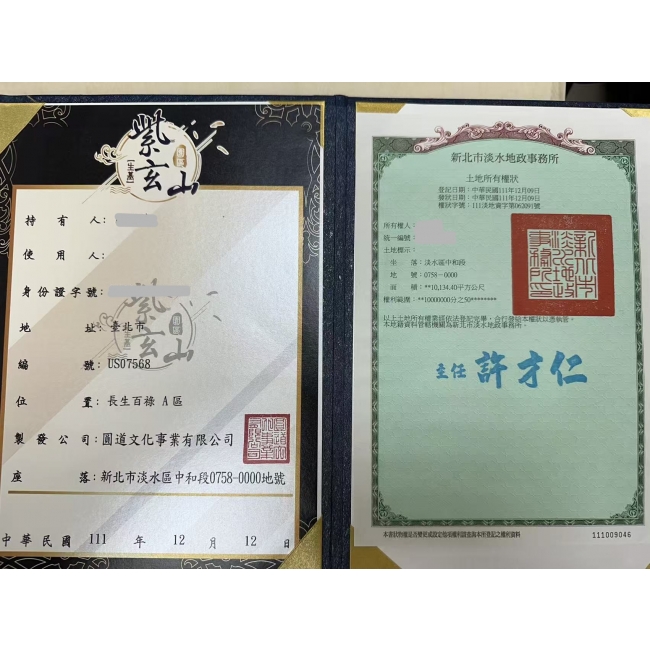 紫玄山
園區
生基
持有人:
使用人:
身份證字號:
地址:臺北市
編號:US07568
位置:長生百祿 A區
製發公司:圓道文化事業有限公司
座落:新北市淡水區中和段0758-0000地號
中華民國 111 年 12 月 12 日
新北市淡水地政事務所
土地所有權狀
登記日期:中華民國111年12月09日
發狀日期:中華民國111年12月09日
權狀字號:111淡地資字第063891號
所有權人:
統一編號:
土地標示:
坐落:淡水區中和段
地號:0758-0000
面積:**10,134.40平方公尺
權利範圍:**10000000分之50********
以上土地所有權業經依法登記完畢,合行發給本權狀以憑執管。
本地籍資料管轄機關為新北市淡水地政事務所。
新北市淡水地政事務所印
主任 許才仁
本書狀物權是否變更或設定他項權利請查詢本所登記之權利資料
111009046